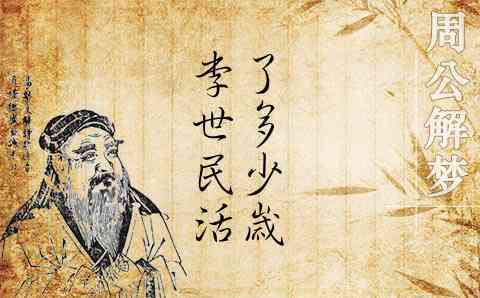 周公解梦
了多少歳
李世民活